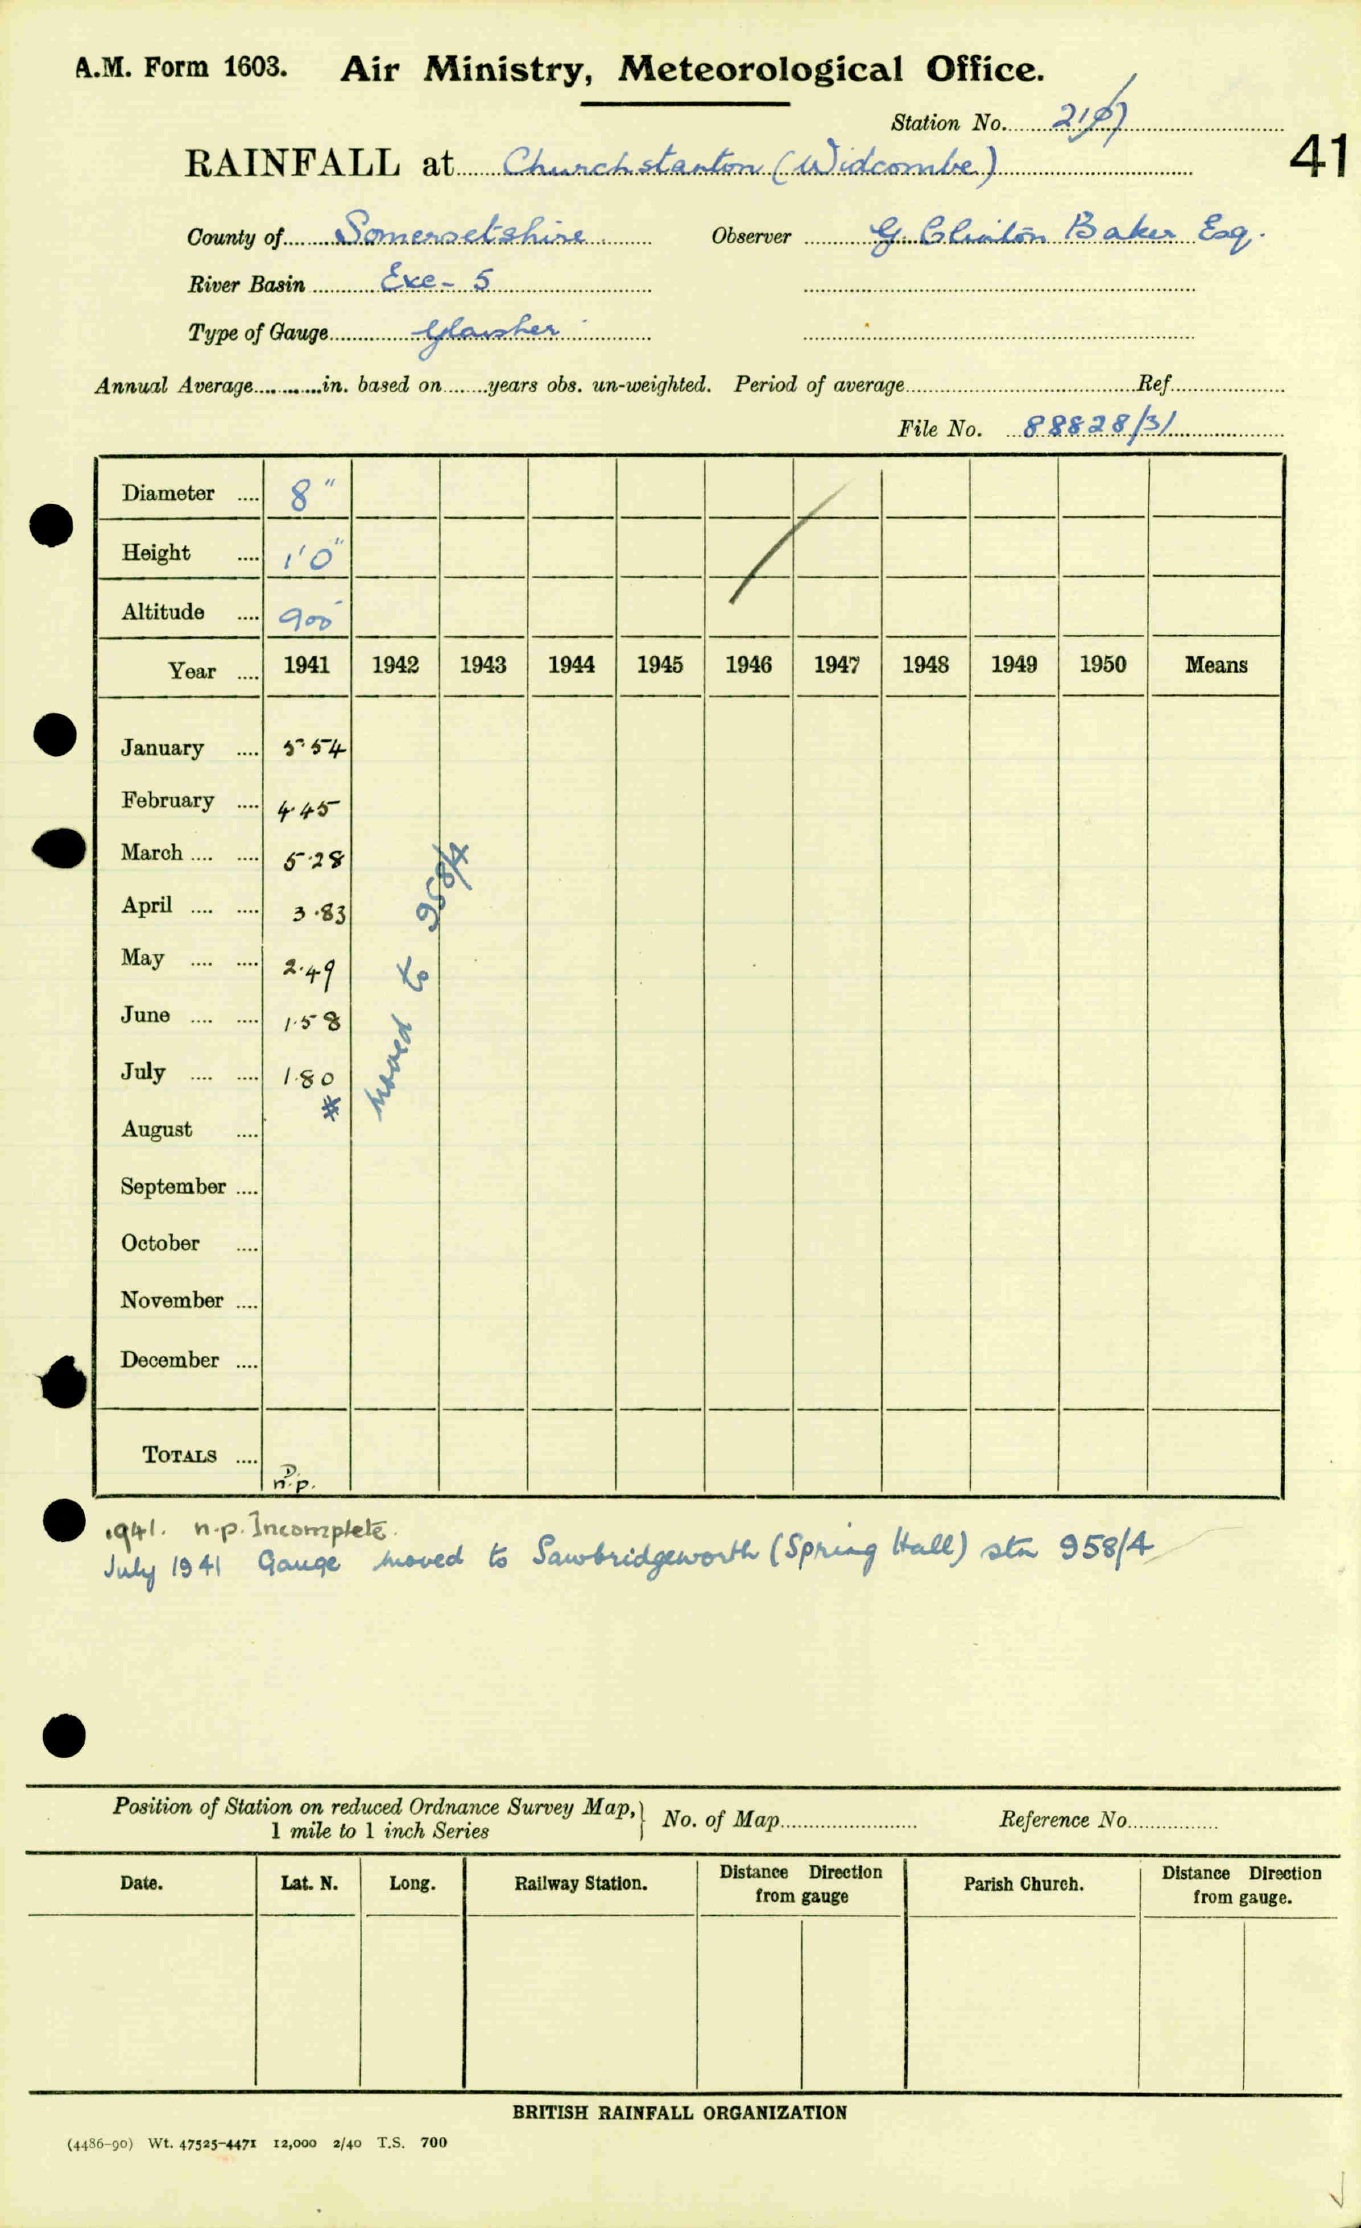 A.M. Form 1603. Air Ministry, Meteorological Office.
Station No.
41
RAINFALL at Churchstanton (Widcombe)
County of Somersetshire Observer G. Clinton Baker Esq.
River Basin Exe - 5
Type of Gauge Glaisher
Annual Average in. based on years obs. un-weighted. Period of average Ref
File No. 88828/31
Diameter 8"
Height 1'0"
Altitude 900'
Year 1941 1942 1943 1944 1945 1946 1947 1948 1949 1950 Means
January 5.54
February 4.45
March 5.28
April 3.83
May 2.49
June 1.58
July 1.80
*
moved to 958/4
August
September
October
November
December
TOTALS
n.p.
1941. n.p. Incomplete.
July 1941 Gauge moved to Sawbridgeworth (Spring Hall) stn 958/4
Position of Station on reduced Ordnance Survey Map, 1 mile to 1 inch Series } No. of Map Reference No.
Date. Lat. N. Long. Railway Station. Distance Direction from gauge Parish Church. Distance Direction from gauge.
BRITISH RAINFALL ORGANIZATION
(4486-90) Wt. 47525-4471 12,000 2/40 T.S. 700